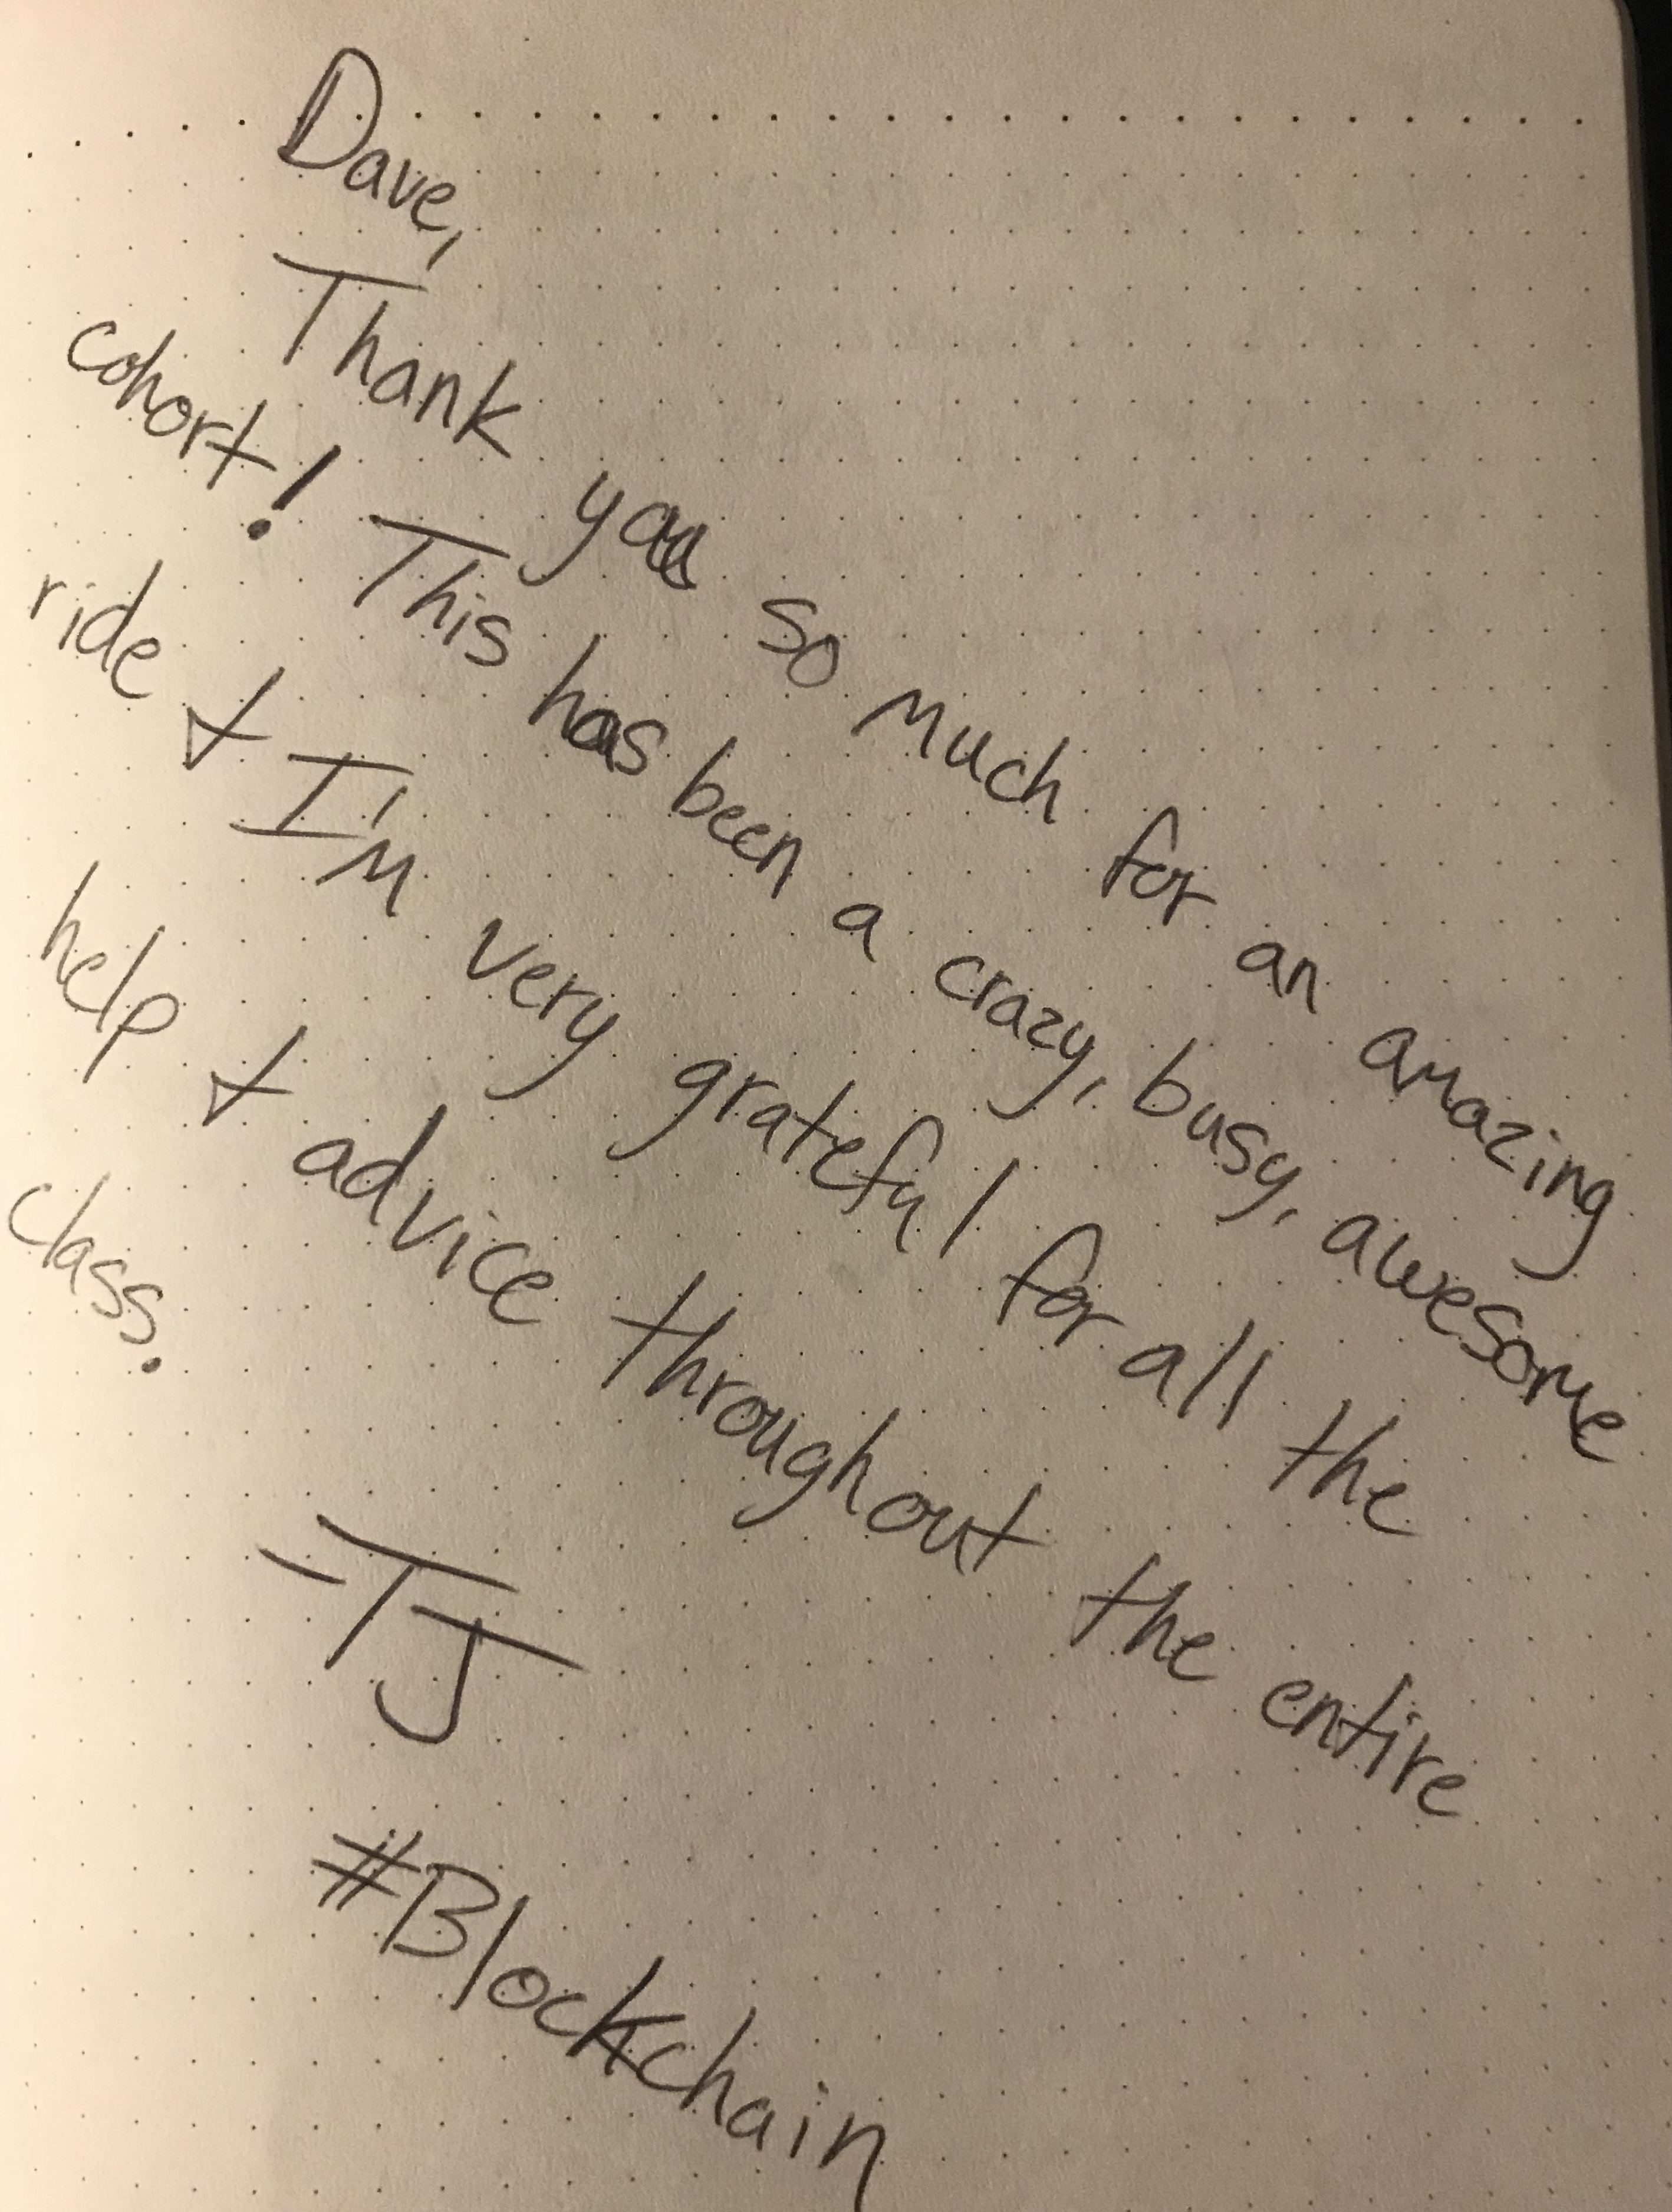 Dave,
Thank you so much for an amazing
cohort! This has been a crazy, busy, awesome
ride & I'm very grateful for all the
help & advice throughout the entire
class.
-TJ
#Blockchain